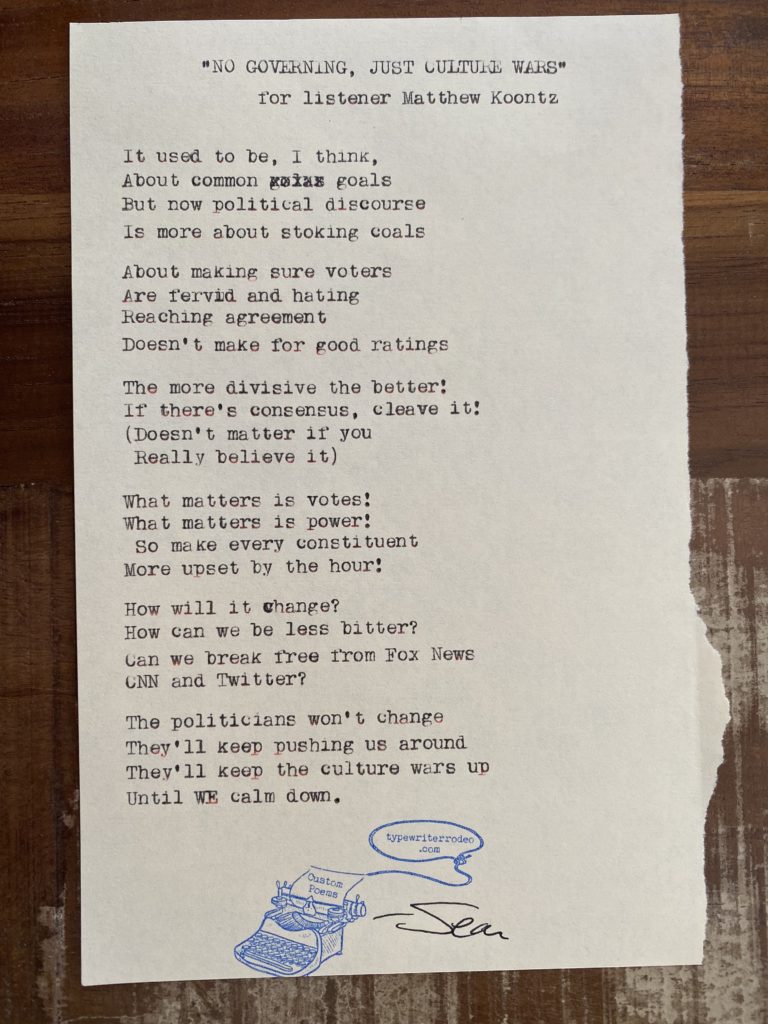 "NO GOVERNING, JUST CULTURE WARS"
for listener Matthew Koontz
It used to be, I think,
About common goals
But now political discourse
Is more about stoking coals
About making sure voters
Are fervid and hating
Reaching agreement
Doesn't make for good ratings
The more divisive the better!
If there's consensus, cleave it!
(Doesn't matter if you
Really believe it)
What matters is votes!
What matters is power!
So make every constituent
More upset by the hour!
How will it change?
How can we be less bitter?
Can we break free from Fox News
CNN and Twitter?
The politicians won't change
They'll keep pushing us around
They'll keep the culture wars up
Until WE calm down.
typewriterrodeo
.com
Custom
Poems
-Sean